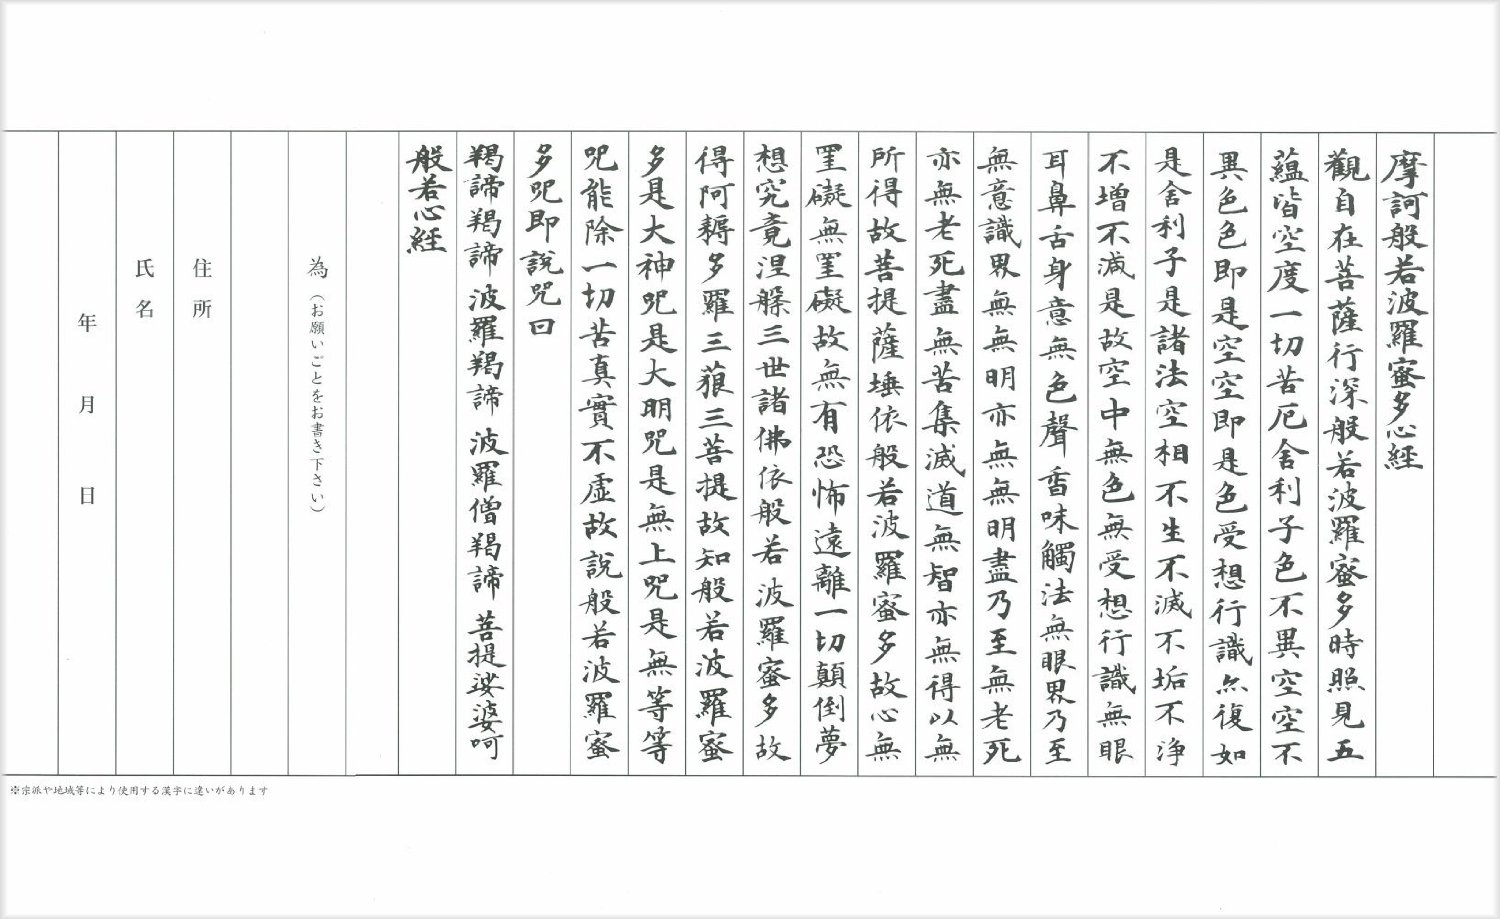 摩訶般若波羅蜜多心経
觀自在菩薩行深般若波羅蜜多時照見五
蘊皆空度一切苦厄舎利子色不異空空不
異色色即是空空即是色受想行識亦復如
是舎利子是諸法空相不生不滅不垢不浄
不増不減是故空中無色無受想行識無眼
耳鼻舌身意無色聲香味觸法無眼界乃至
無意識界無無明亦無無明盡乃至無老死
亦無老死盡無苦集滅道無智亦無得以無
所得故菩提薩埵依般若波羅蜜多故心無
罣礙無罣礙故無有恐怖遠離一切顛倒夢
想究竟涅槃三世諸佛依般若波羅蜜多故
得阿耨多羅三藐三菩提故知般若波羅蜜
多是大神咒是大明咒是無上咒是無等等
咒能除一切苦真實不虚故説般若波羅蜜
多咒即説咒曰
羯諦羯諦波羅羯諦波羅僧羯諦菩提娑婆呵
般若心経
為(お願いごとをお書き下さい)
住所
氏名
年月日
※宗派や地域等により使用する漢字に違いがあります